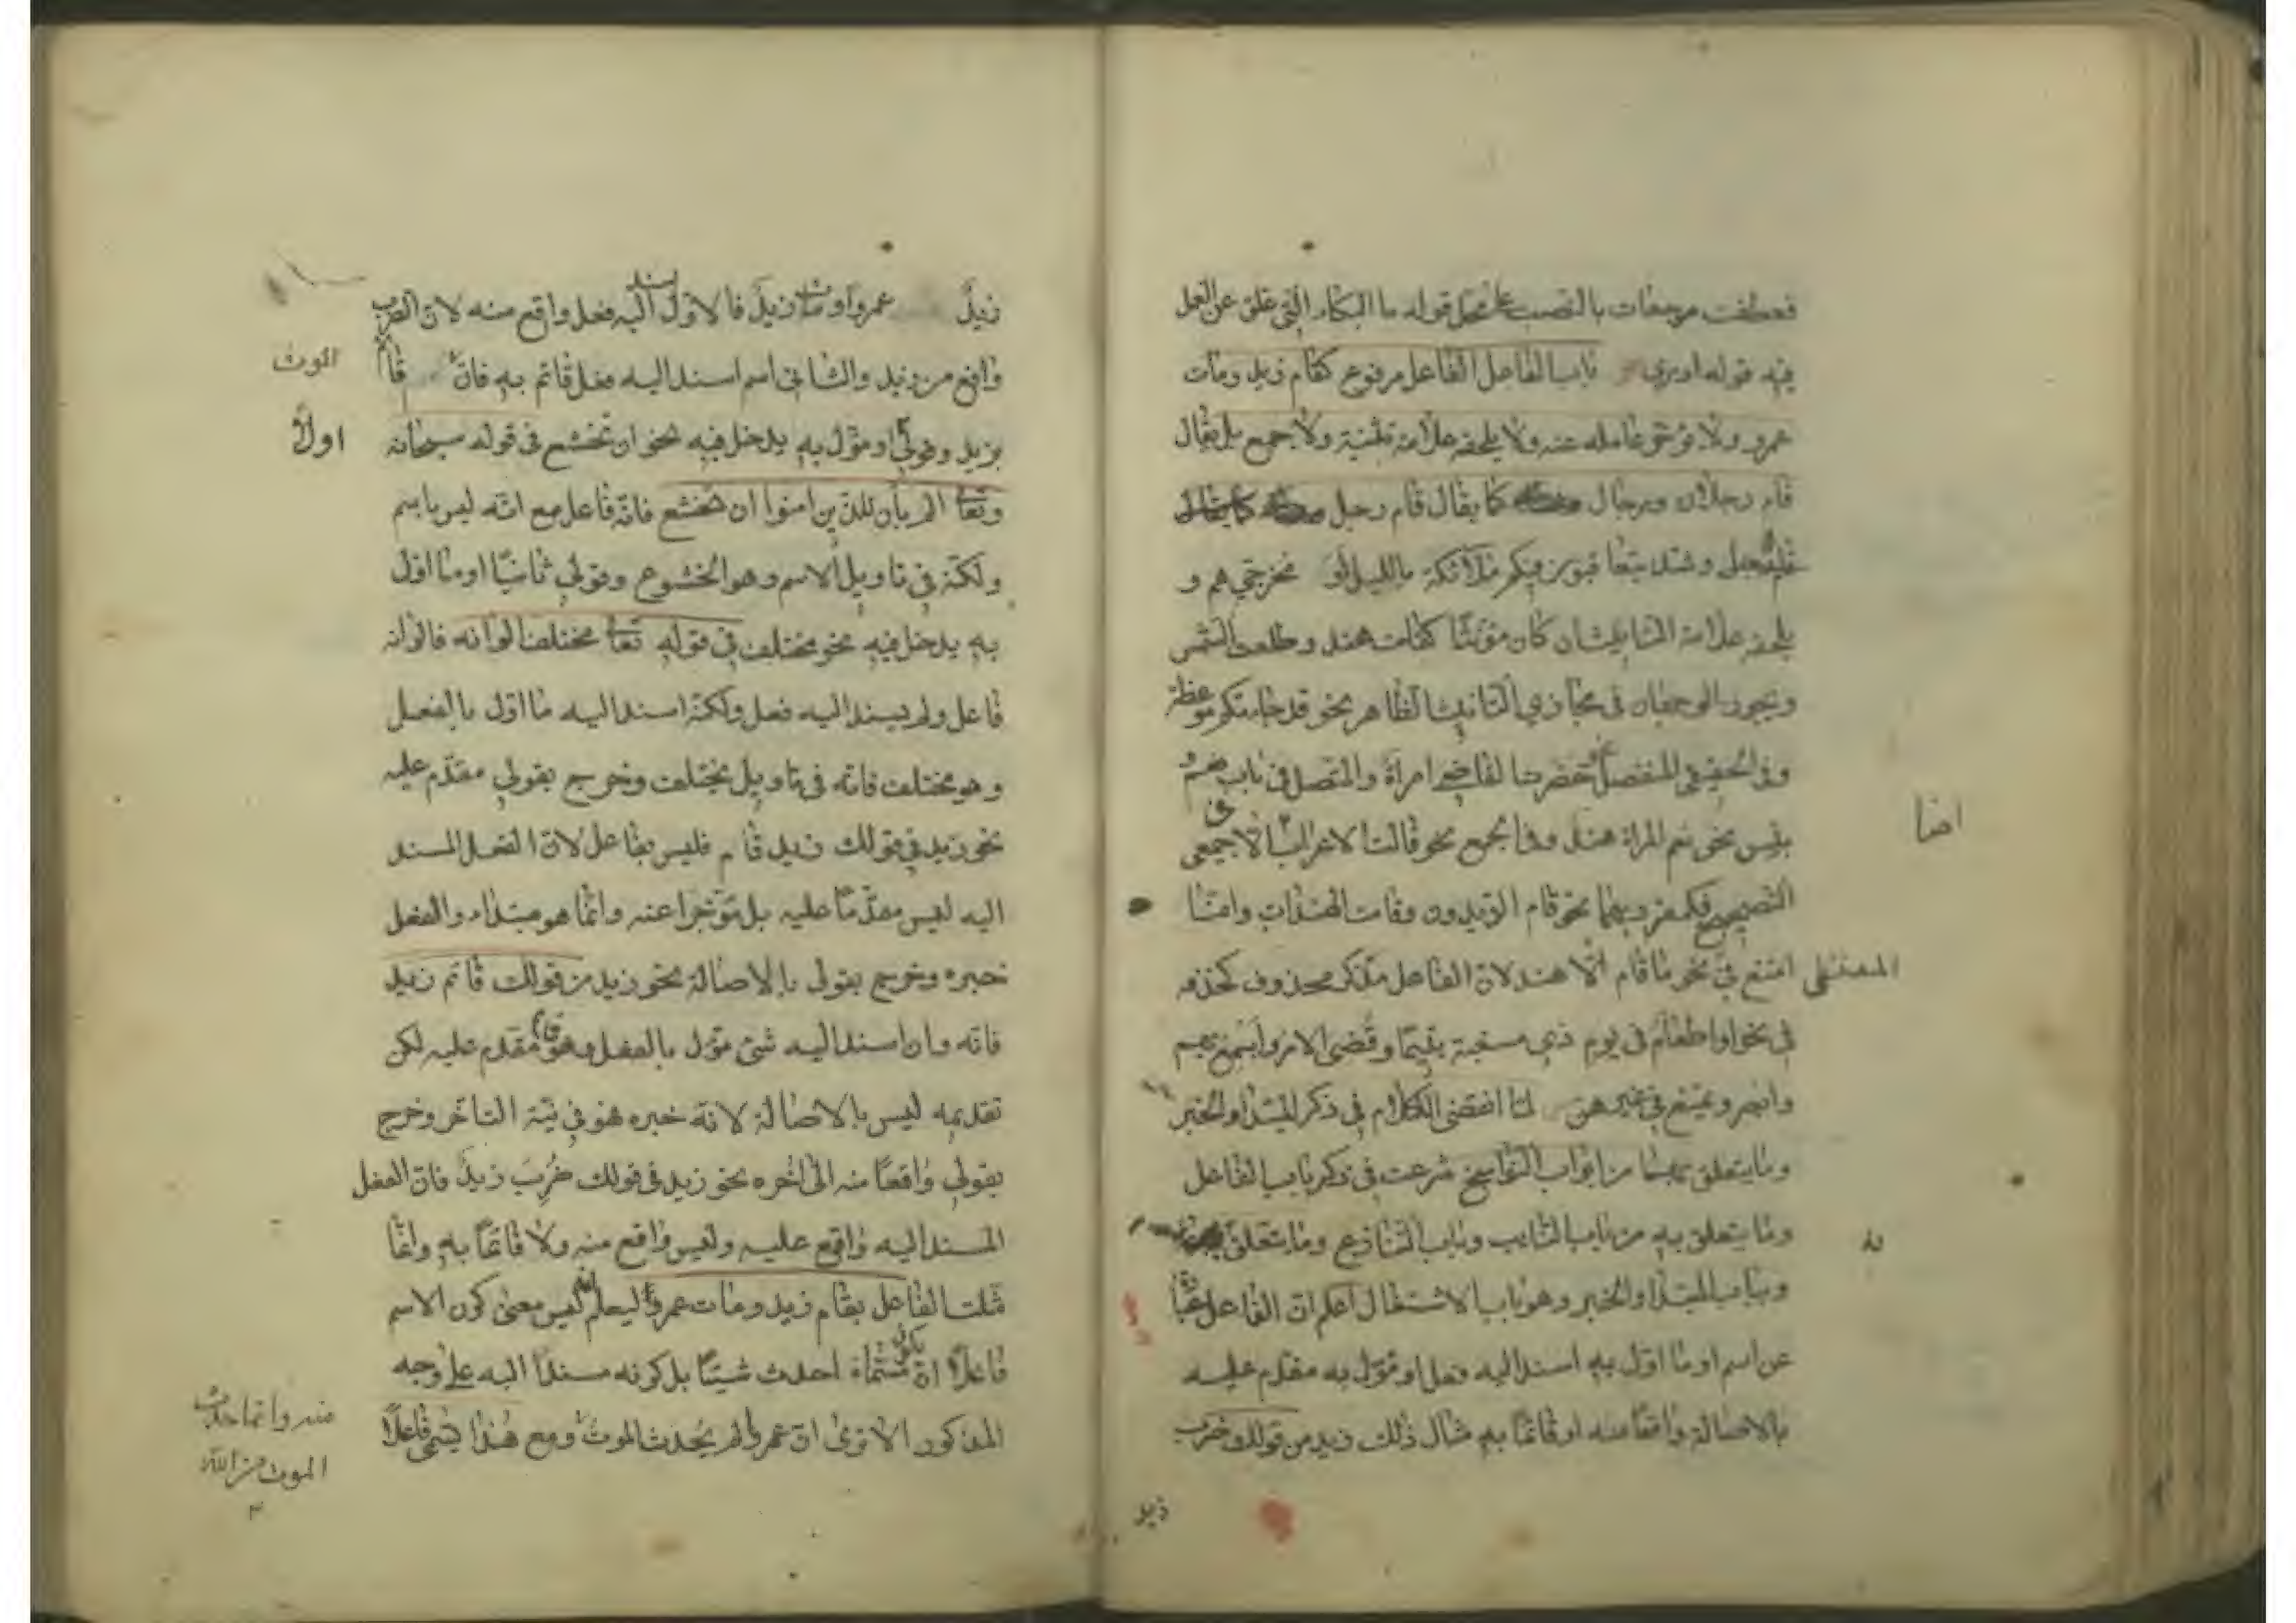 فعطف موجعات بالنصب على محل قوله ما البكاء التي علق عن العمل
فيه قوله ادري باب الفاعل الفاعل مرفوع كقام زيد ومات
عمرو ولا يؤخر عامله عنه ولا يلحقه علامة تثنية ولا جمع بل يقال
قام رجلان ورجال كما يقال قام رجل
وشذ يتعاقبون فيكم ملائكة بالليل او مخرجي هم و
يلحقه علامة التانيث ان كان مؤنثا كقامت هند وطلعت الشمس
ويجوز الوجهان في مجازي التانيث الظاهر نحو قد جاءتكم موعظة
وفي الحقيقي المنفصل نحو حضرت القاضي امراة والمتصل في باب نعم و
بئس نحو نعم المراة هند وفي الجمع نحو قالت الاعراب الا جمعي
التصحيح فكمفرديهما نحو قام الزيدون وقامت الهندات وانما
امتنع في نحو ما قام الا هند لان الفاعل مذكر محذوف كحذفه
في نحو او اطعام في يوم ذي مسغبة يتيما وقضي الامر واسمع بهم
وابصر ويمتنع في غيرهن لما انقضى الكلام في ذكر المبتدا والخبر
وما يتعلق بهما من ابواب النواسخ شرعت في ذكر باب الفاعل
وما يتعلق به من باب النائب وباب التنازع وما يتعلق
وبباب المبتدا والخبر وهو باب الاشتغال اعلم ان الفاعل عبارة
عن اسم او ما اول به اسند اليه فعل او مؤول به مقدم عليه
بالاصالة واقعا منه او قائما به مثال ذلك زيد من قولك ضرب
ايضا
زيد
زيد عمروا او مات زيد فالاول اسند اليه فعل واقع منه لان الضرب
واقع من زيد والثاني اسم اسند اليه فعل قائم به فان قائم
الموت
بزيد وقولي او مؤول به يدخل فيه نحو ان تخشع في قوله سبحانه
اولا
وتعا الم يأن للذين امنوا ان تخشع فانه فاعل مع انه ليس باسم
ولكنه في تاويل الاسم وهو الخشوع وقولي ثانيا او ما اول
به يدخل فيه نحو مختلف في قوله تعا مختلف الوانه فالوانه
فاعل ولم يسند اليه فعل ولكنه اسند اليه ما اول بالفعل
وهو مختلف فانه في تاويل يختلف وخرج بقولي مقدم عليه
نحو زيد في قولك زيد قام فليس بفاعل لان الفعل المسند
اليه ليس مقدما عليه بل مؤخرا عنه وانما هو مبتداء والفعل
خبره وخرج بقولي بالاصالة نحو زيد من قولك قائم زيد
فانه وان اسند اليه شئ مؤل بالفعل وهو قائم مقدم عليه لكن
تقديمه ليس بالاصالة لانه خبره فهو في نية التاخر وخرج
بقولي واقعا منه الى اخره نحو زيد في قولك ضرب زيد فان الفعل
المسند اليه واقع عليه وليس واقع منه ولا قائما به وانما
مثلت الفاعل بقام زيد ومات عمرو ليعلم انه ليس معنى كون الاسم
فاعلا ان مسماه احدث شيئا بل كونه مسندا اليه على وجه
المذكور الا ترى ان عمروا لم يحدث الموت ومع هذا يسمى فاعلا
منه وانما حدث
الموت من الله